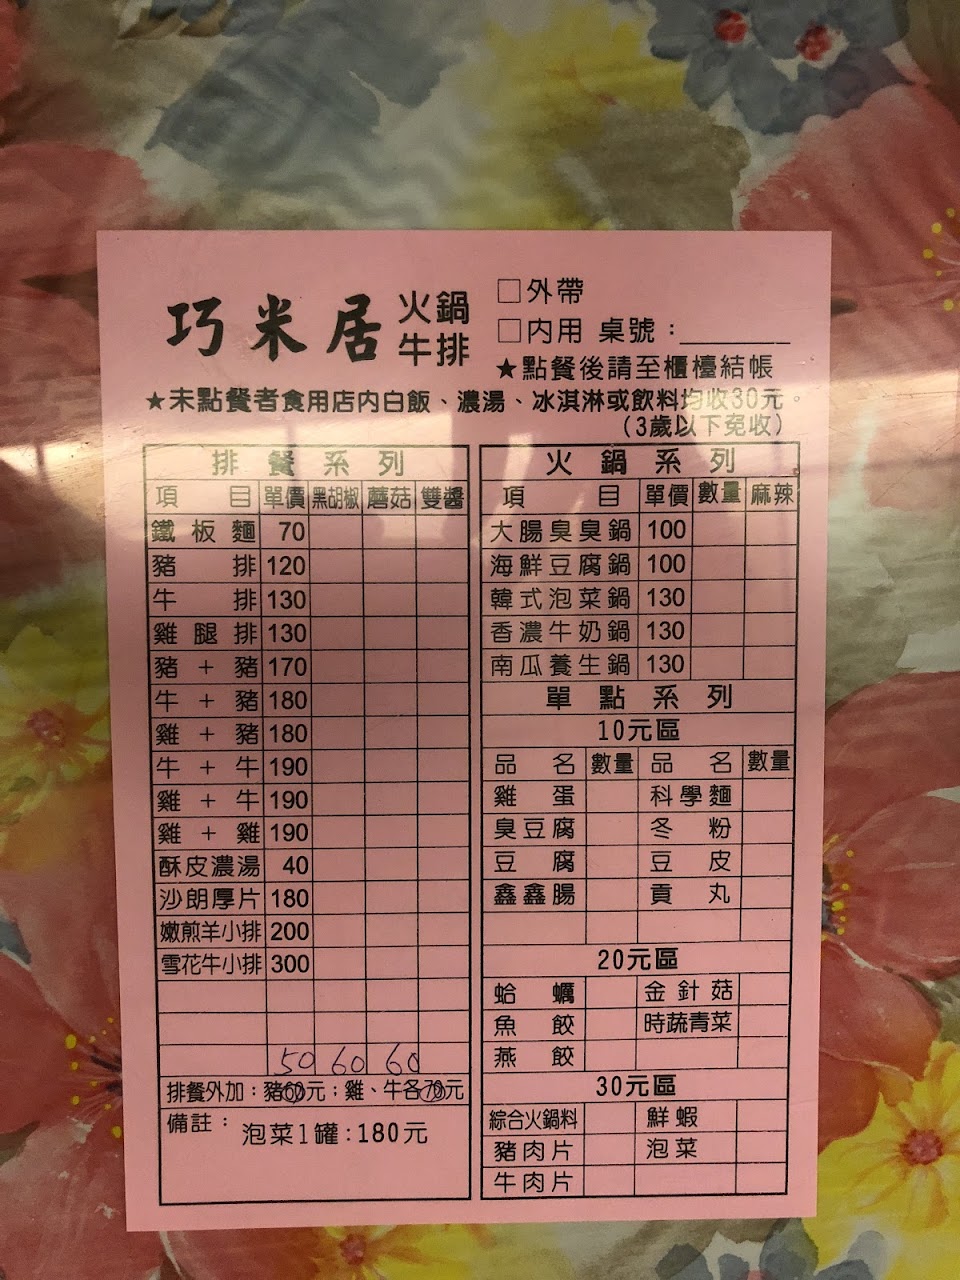 巧米居 火鍋
牛排
□外帶
□內用 桌號：
★點餐後請至櫃檯結帳
★未點餐者食用店內白飯、濃湯、冰淇淋或飲料均收30元。
（3歲以下免收）
排餐系列
項目 單價 黑胡椒 蘑菇 雙醬
鐵板麵 70
豬排 120
牛排 130
雞腿排 130
豬＋豬 170
牛＋豬 180
雞＋豬 180
牛＋牛 190
雞＋牛 190
雞＋雞 190
酥皮濃湯 40
沙朗厚片 180
嫩煎羊小排 200
雪花牛小排 300
50 60 60
排餐外加：豬60元；雞、牛各70元
備註：
泡菜1罐：180元
火鍋系列
項目 單價 數量 麻辣
大腸臭臭鍋 100
海鮮豆腐鍋 100
韓式泡菜鍋 130
香濃牛奶鍋 130
南瓜養生鍋 130
單點系列
10元區
品名 數量 品名 數量
雞蛋 科學麵
臭豆腐 冬粉
豆腐 豆皮
鑫鑫腸 貢丸
20元區
蛤蠣 金針菇
魚餃 時蔬青菜
燕餃
30元區
綜合火鍋料 鮮蝦
豬肉片 泡菜
牛肉片